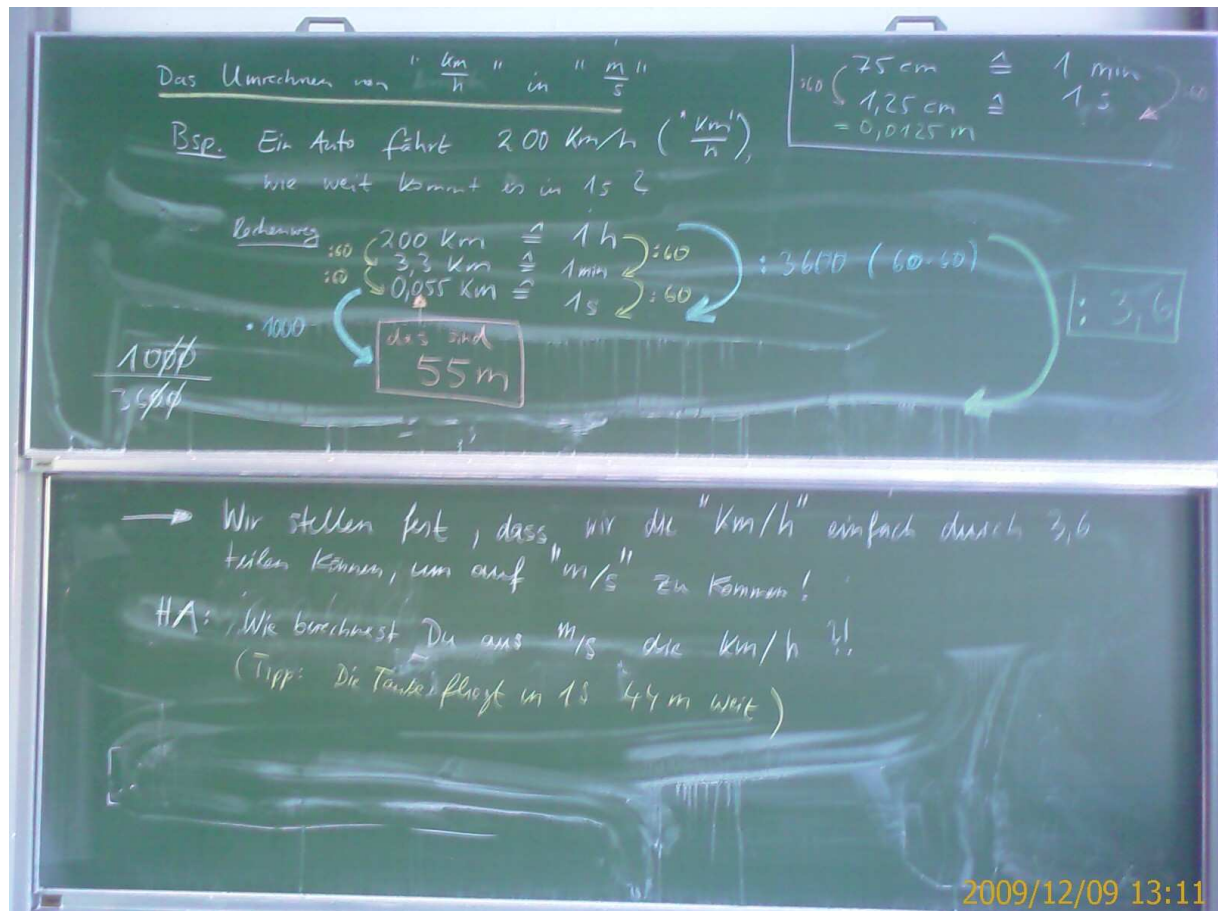 Das Umrechnen von "km/h" in "m/s"
75 cm ≙ 1 min
:60 :60
1,25 cm ≙ 1 s
= 0,0125 m
Bsp. Ein Auto fährt 200 Km/h ("Km/h"),
wie weit kommt es in 1s?
Rechenweg 200 Km ≙ 1h
:60 :60
3,3 Km ≙ 1min
:60 :60
0,055 Km ≙ 1s
: 3600 (60·60)
: 3,6
· 1000
das sind
55m
1000/3600
→ Wir stellen fest, dass wir die "Km/h" einfach durch 3,6
teilen können, um auf "m/s" zu kommen!
HA: Wie berechnest Du aus m/s die km/h ?!
(Tipp: Die Taube fliegt in 1s 44m weit)
2009/12/09 13:11